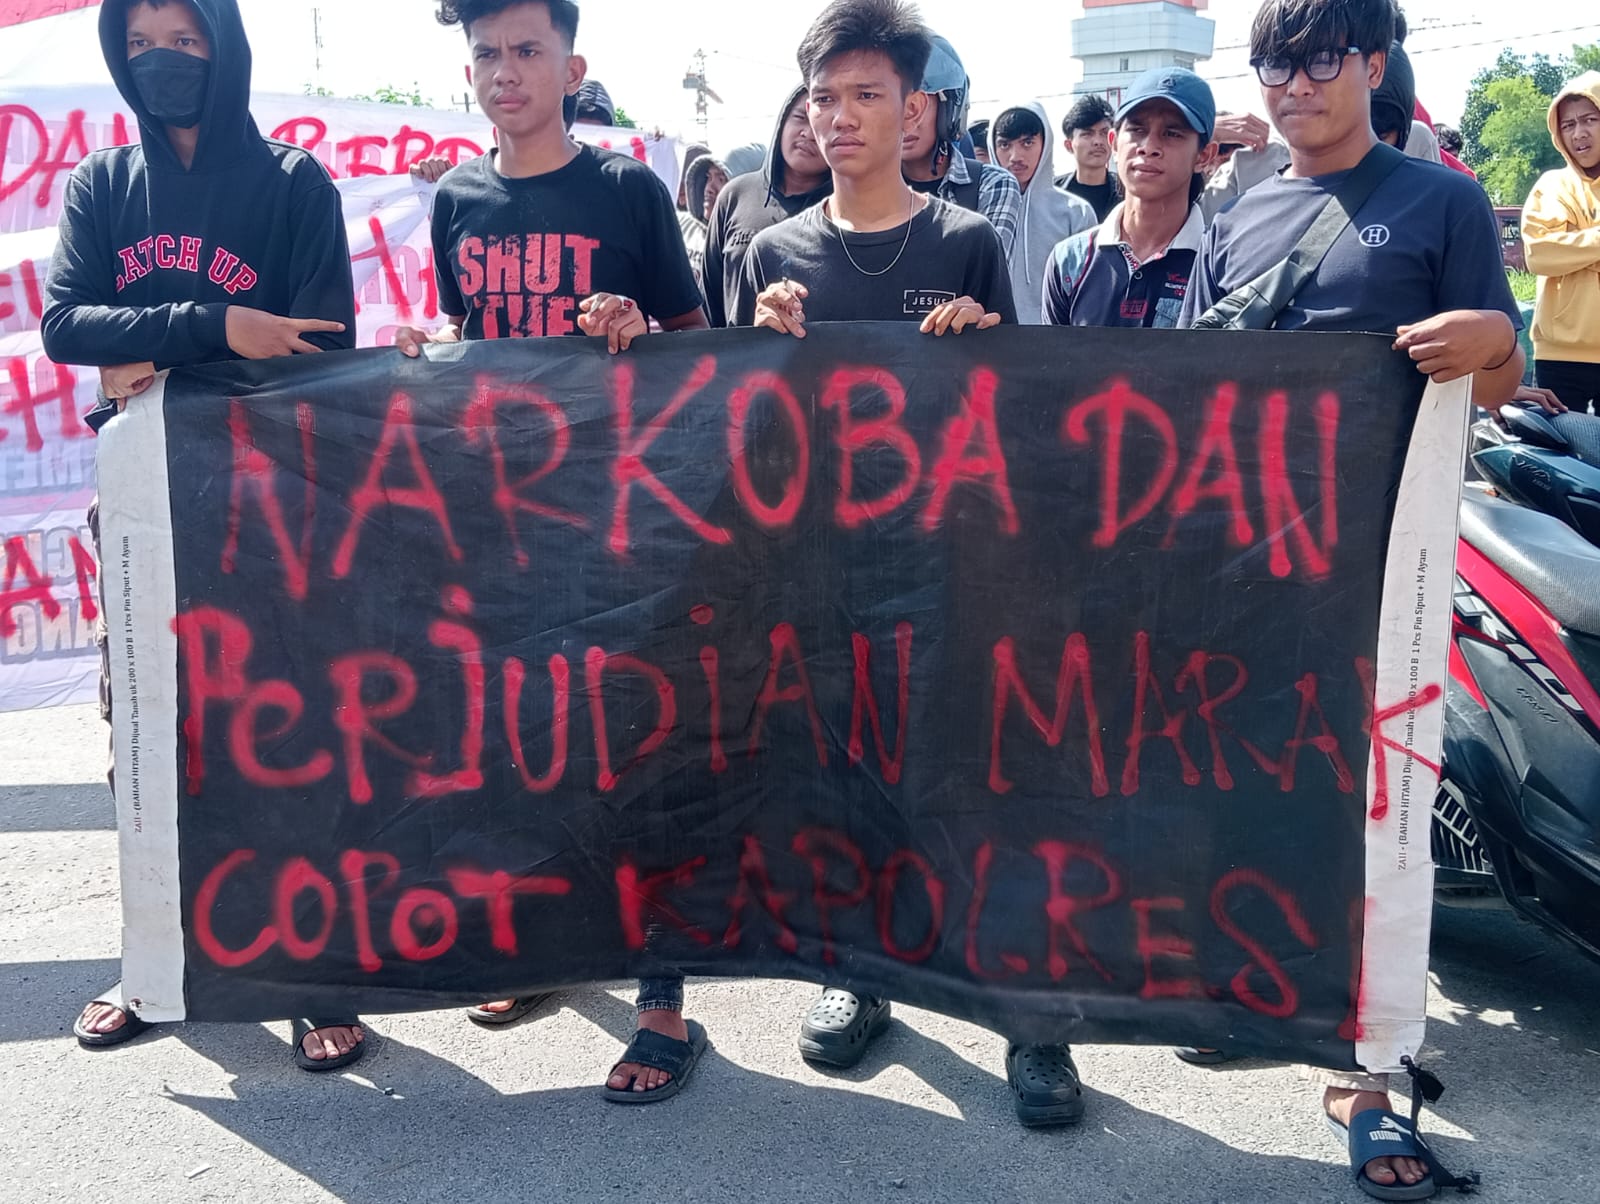 NARKOBA DAN
PeRJUDiAN MARAK
COPOT KAPOLRES!
CATCH UP
SHUT
THE
JESUS
H
ZAIl - (BAHAN HITAM) Dijual Tanah uk 200 x 100 B 1 Pcs Fin Siput + M Ayam
ZAIl - (BAHAN HITAM) Dijual Tanah uk 200 x 100 B 1 Pcs Fin Siput + M Ayam
DAN
PUMA